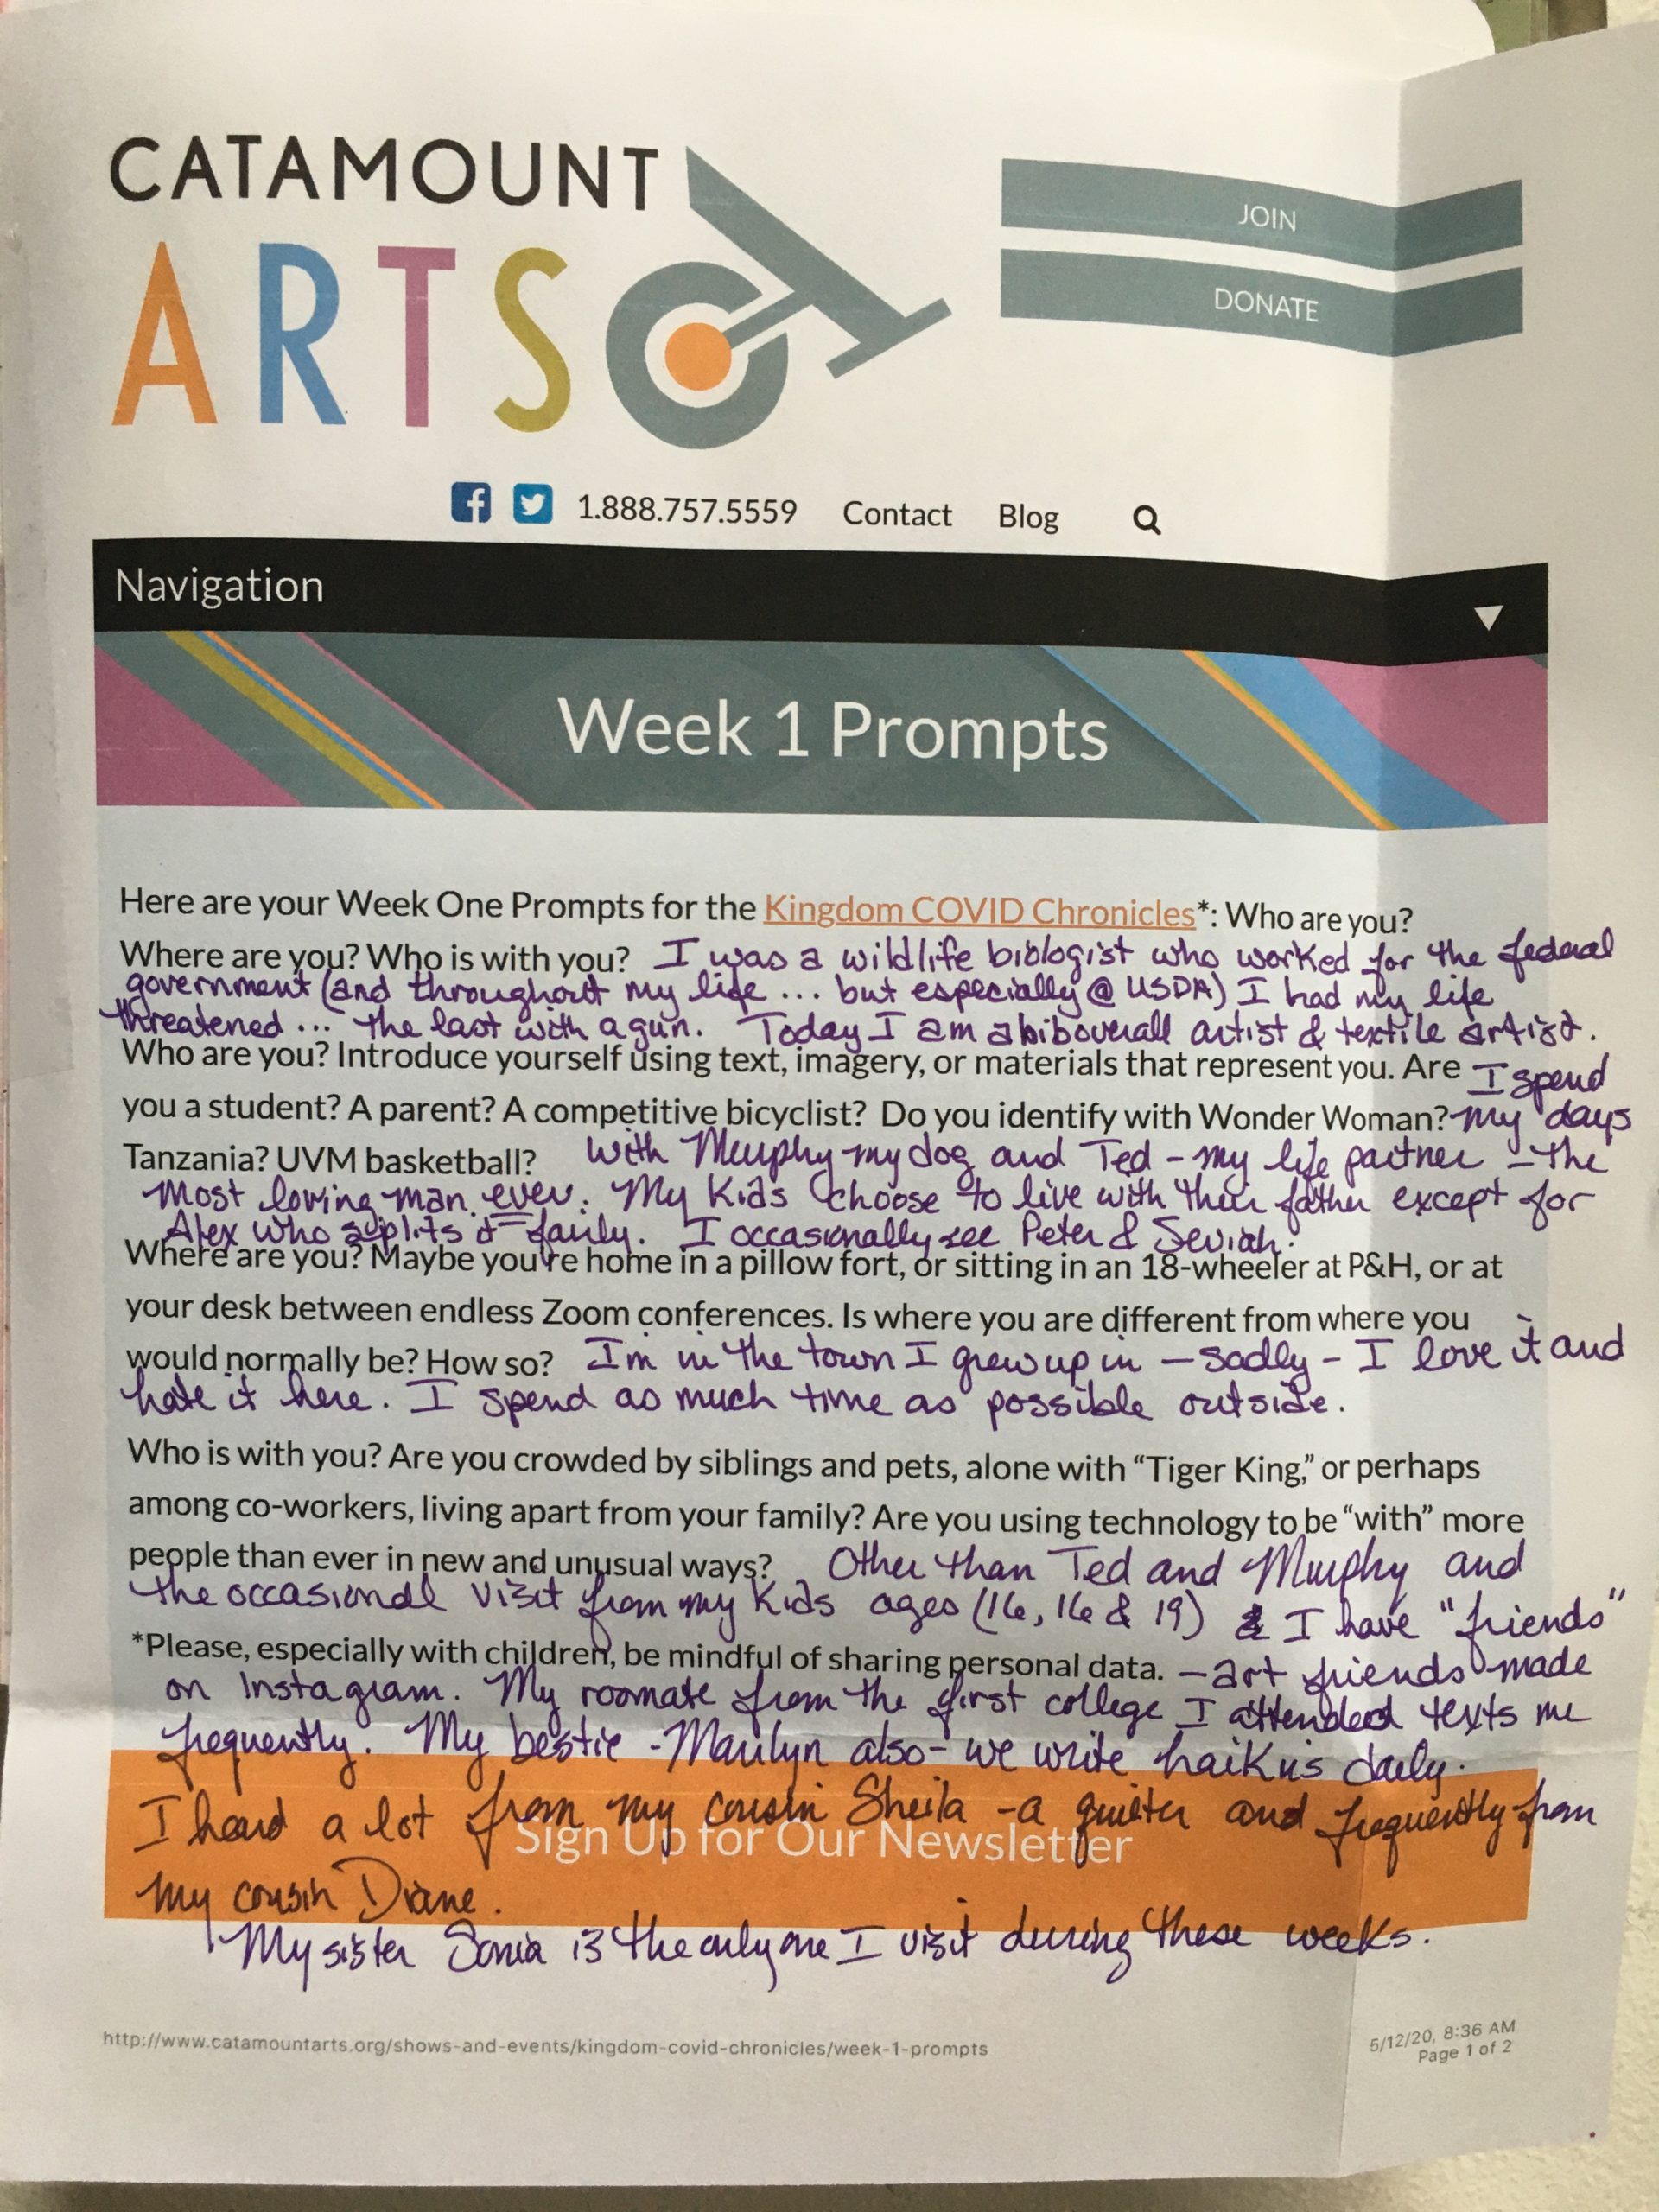 CATAMOUNT
ARTS
JOIN
DONATE
1.888.757.5559 Contact Blog
Navigation
Week 1 Prompts
Here are your Week One Prompts for the Kingdom COVID Chronicles*: Who are you?
Where are you? Who is with you? I was a wildlife biologist who worked for the federal
government (and throughout my life ... but especially @ USDA) I had my life
threatened ... the last with a gun. Today I am a artist & textile artist.
Who are you? Introduce yourself using text, imagery, or materials that represent you. Are I spend
you a student? A parent? A competitive bicyclist? Do you identify with Wonder Woman? my days
Tanzania? UVM basketball? with Murphy my dog and Ted - my life partner - the
most loving man ever. My kids choose to live with their father except for
Alex who splits it fairly. I occasionally see Peter &
Where are you? Maybe you're home in a pillow fort, or sitting in an 18-wheeler at P&H, or at
your desk between endless Zoom conferences. Is where you are different from where you
would normally be? How so? I'm in the town I grew up in - sadly - I love it and
hate it here. I spend as much time as possible outside.
Who is with you? Are you crowded by siblings and pets, alone with “Tiger King,” or perhaps
among co-workers, living apart from your family? Are you using technology to be “with” more
people than ever in new and unusual ways? Other than Ted and Murphy and
the occasional visit from my kids ages (16, 16 & 19) I have "friends"
*Please, especially with children, be mindful of sharing personal data. - art friends made
on Instagram. My roomate from the first college I attended texts me
frequently. My bestie - Marilyn also - we write haikus daily.
I heard a lot from my cousin Sheila - a quilter and frequently from
Sign Up for Our Newsletter
my cousin Diane.
My sister Sonia is the only one I visit during these weeks.
http://www.catamountarts.org/shows-and-events/kingdom-covid-chronicles/week-1-prompts
5/12/20, 8:36 AM
Page 1 of 2